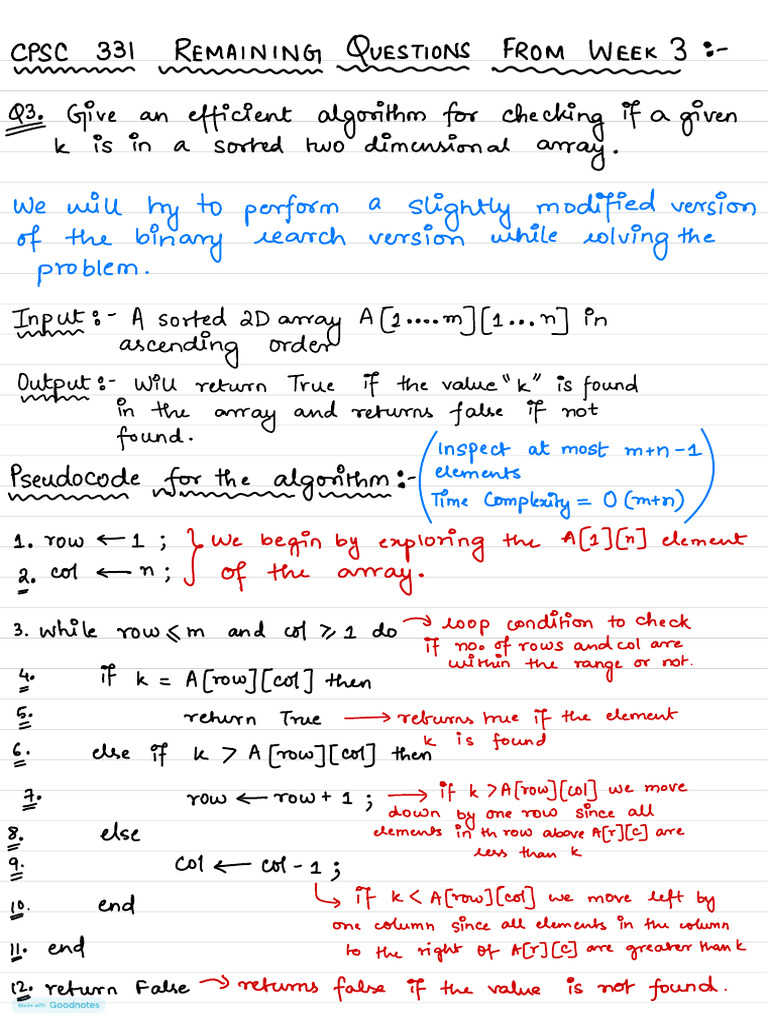 CPSC 331 REMAINING QUESTIONS FROM WEEK 3 :-
Q3. Give an efficient algorithm for checking if a given
k is in a sorted two dimensional array.
We will try to perform a slightly modified version
of the binary search version while solving the
problem.
Input :- A sorted 2D array A[1....m][1...n] in
ascending order
Output :- Will return True if the value "k" is found
in the array and returns false if not
found.
(Inspect at most m+n-1
elements
Time Complexity = O(m+n))
Pseudocode for the algorithm :-
1. row ← 1 ; } We begin by exploring the A[1][n] element
2. col ← n ; } of the array.
3. while row ≤ m and col ≥ 1 do → loop condition to check
if no. of rows and col are
within the range or not.
4. if k = A[row][col] then
5. return True → returns true if the element
k is found
6. else if k > A[row][col] then
7. row ← row + 1 ; → if k > A[row][col] we move
down by one row since all
elements in th row above A[r][c] are
less than k
8. else
9. col ← col - 1 ;
↳ if k < A[row][col] we move left by
one column since all elements in the column
to the right of A[r][c] are greater than k
10. end
11. end
12. return False → returns false if the value is not found.
Made with Goodnotes